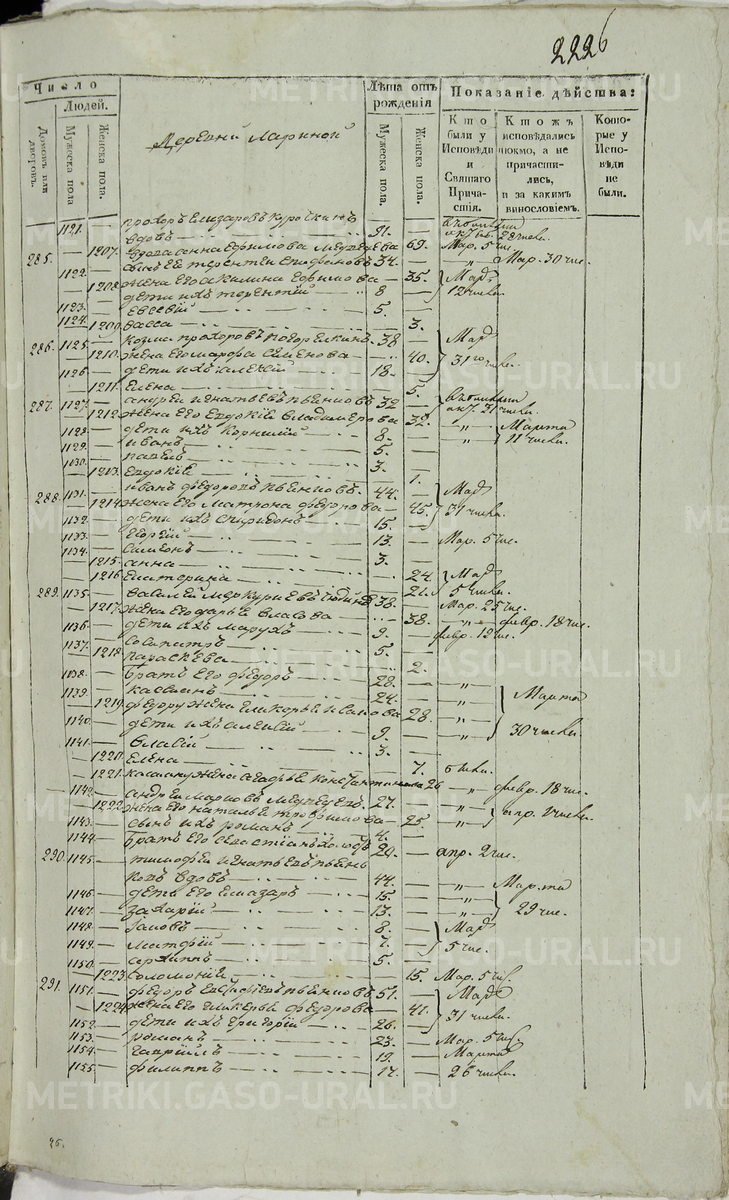 2226
Число
Людей.
Домовъ или дворовъ.
Мужеска пола
Женска пола.
Деревни Лариной
Лѣта отъ рожденія
Мужеска пола.
Женска пола.
Показаніе дѣйства:
Кто были у Исповѣди и Святаго Причастія.
Ктожъ исповѣдались токмо, а не причастились, и за какимъ винословіемъ.
Которые у Исповѣди не были.
1121. прохоръ Елизаровъ
вдовъ 91. 28 числ.
285. 1207. вдова анна Ефимова 69. Мар. 5 чис.
1122. сынъ Ея терентей 34. Мар. 30 чис.
1208. жена Его акилина Ефимова 35. Мар.
дети ихъ терентій 8 12 числ.
1123. Евсевій 5.
1124. 1209. васса 3.
286. 1125. козма прохоровъ 38 Мар.
1210. жена Его марфа Семенова 40. 31го числ.
1126. дети ихъ алексій 18.
1211. Елена 5.
287. 1127. андрей игнатьевъ пьянковъ 32 31 числ.
1212. жена Его Евдокія владимерова 32. „ Марта
1128. дети ихъ Корнилій 8. „ 11 числ.
1129. иванъ 5.
1030. павелъ 3.
1203. Евдокія 1.
288. 1131. иванъ федоровъ пьянковъ. 44. Мар.
1214. жена Его матрона федорова 45. 31 числа.
1132. дети ихъ спиридонъ 15.
1133. георгій 13. Мар. 5 чис.
1134. Симеонъ 3.
1215. анна 24. Мар.
1216. Екатерина 21. 5 числ.
289. 1135. василей меркурьевъ 38. Мар. 25 чис.
1217. жена Его дарья власова 38. „ февр. 18 чис.
1136. дети ихъ 9. февр. 12 чис.
1137. сосипатръ 5.
1218. параскева 2.
1138. братъ Его федоръ 28. „
1139. касьянъ 24. „ Марта
1219. федору жена гликерья 28. „
1140. дети ихъ алексій 9. „ 30 числ.
1141. власій 3.
1220. Елена 7. 5 числ.
1221. касьану жена агафья константинова 26 „ февр. 18 чис.
1142. андрей марковъ 27. „
1222. жена Его наталья трофимова 25. „ апр. 2 числ.
1143. сынъ ихъ романъ 4.
1144. братъ Его севастіанъ 20. апр. 2 чис.
290. 1145. тимофей игнатьевъ пьянковъ вдовъ 44. „ Марта
1146. дети Его Елизаръ 15. „
1147. захарій 13. „ 29 чис.
1148. Іаковъ 8. Мар.
1149. матфій 7. 5 чис.
1150. архиппъ 5.
1223. Соломонія 15. Мар. 5 чис.
291. 1151. федоръ пьянковъ 51. Мар.
1224. жена Его гликерья федорова 41. 31 числ.
1152. дети ихъ григорій 26.
1153. романъ 23. Мар. 5 чис.
1154. гавріилъ 19. Марта
1155. филиппъ 17. 26 числ.
METRIKI.GASO-URAL.RU